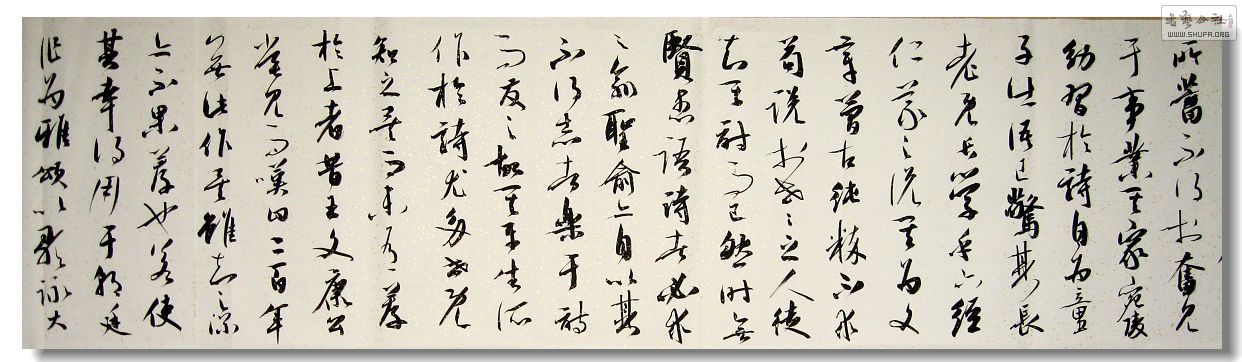 所蓄不得於奮見
于事業其家宛陵
幼習於詩自為童
子出語已驚其長
老既長學乎六經
仁義之說其為文
章簡古純粹不求
苟說於世之人徒
知其詩而已然時無
賢愚語詩者必求
之俞聖俞亦自以其
不得志者樂于詩
而發之故其平生所
作於詩尤多世既
知之矣而未有薦
於上者昔王文康公
嘗見而嘆曰二百年
無此作矣雖知之深
亦不果薦也若使
其幸得用于朝廷
作為雅頌以歌詠大
WWW.SHUFA.ORG